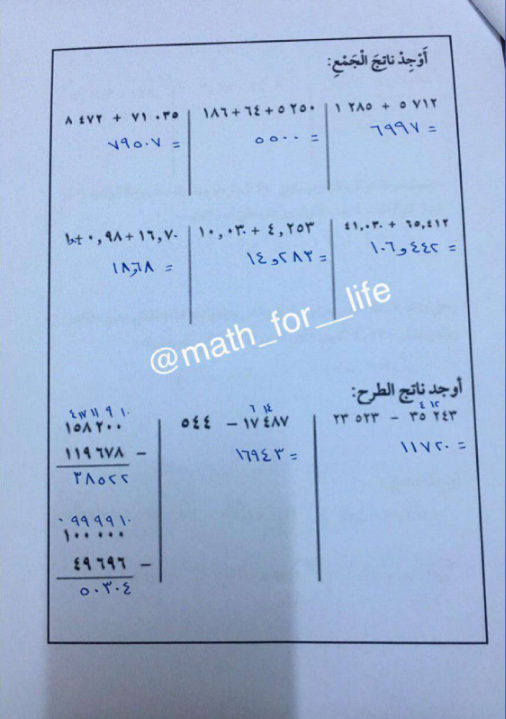 أَوْجِدْ ناتِجَ الْجَمْعِ:
١ ٢٨٥ + ٥ ٧١٢
= ٦٩٩٧
١٨٦+٦٤+٥ ٢٥٠
= ٥٥٠٠
٨ ٤٧٢ + ٧١ ٠٣٥
= ٧٩٥٠٧
٤١,٠٣٠ + ٦٥,٤١٢
= ١٠٦,٤٤٢
١٠,٠٣٠ + ٤,٢٥٣
= ١٤,٢٨٣
+٠,٩٨+١٦,٧٠
= ١٨,٦٨
@math_for__life
أوجد ناتج الطرح:
٤ ١٢
٢٣ ٥٢٣ − ٣٥ ٢٤٣
= ١١٧٢٠
٦ ١٤
٥٤٤ − ١٧ ٤٨٧
= ١٦٩٤٣
٤ ١٧ ١١ ٩ ١٠
١٥٨ ٢٠٠
١١٩ ٦٧٨ −
٣٨٥٢٢
٠ ٩ ٩ ٩ ٩ ١٠
١٠٠ ٠٠٠
٤٩ ٦٩٦ −
٥٠٣٠٤